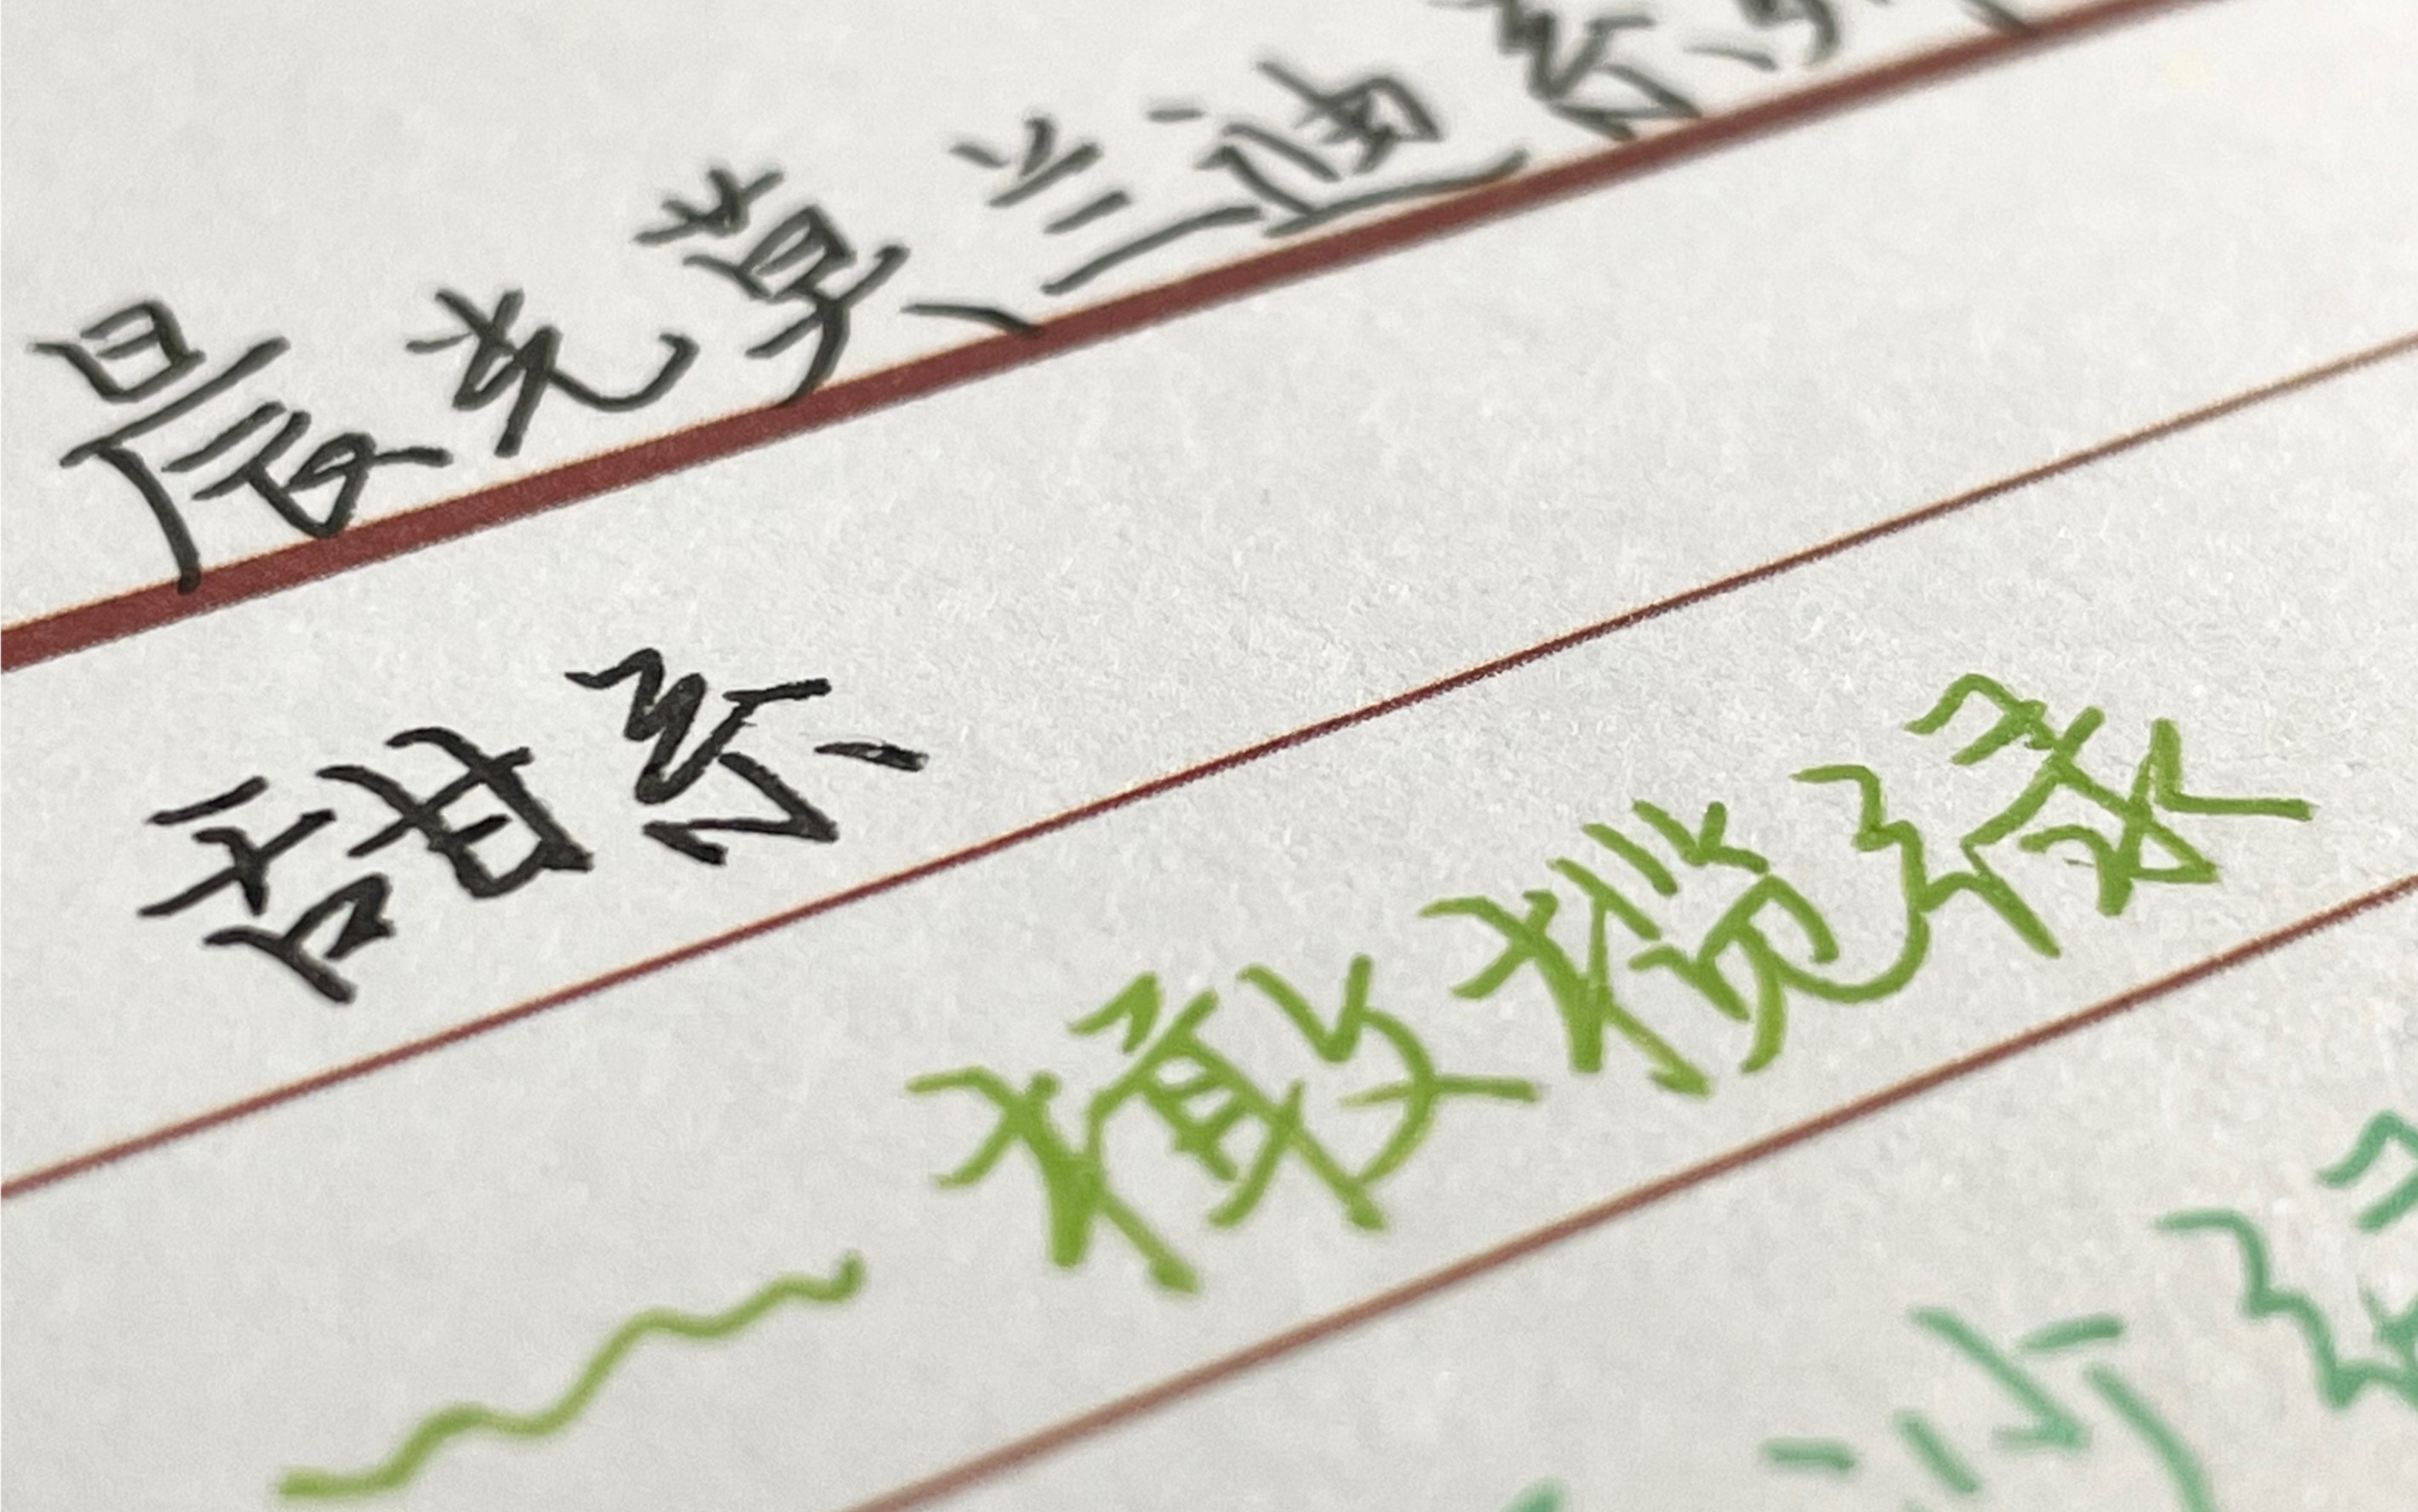 晨光莫兰迪系列
甜系
橄榄绿